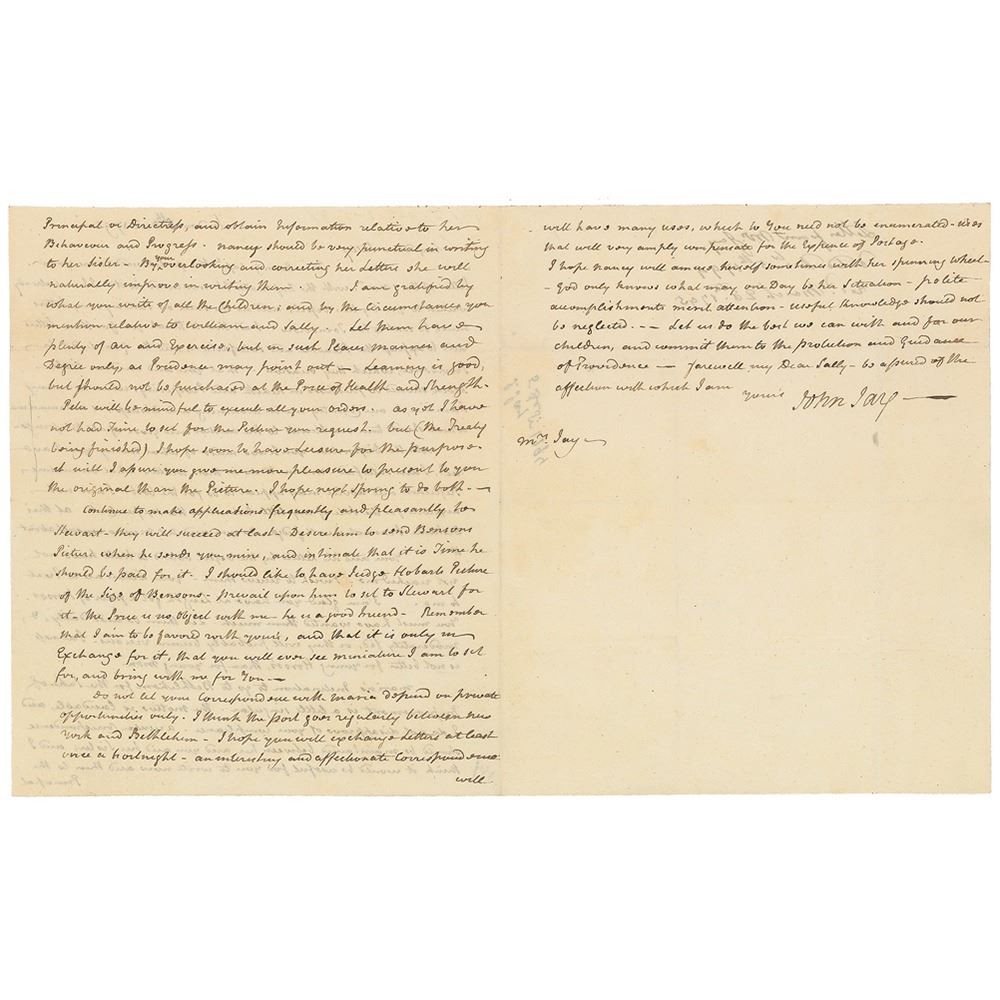 Principal or Directress, and obtain Information relative to her
Behaviour and Progress. Nancy should be very punctual in writing
to her Sister - By your overlooking and correcting her Letters she will
naturally improve in writing them. I am gratified by
what you write of all the Children; and by the Circumstances you
mention relative to William and Sally. Let them have
plenty of air and Exercise, but in such Places manner and
Degree only, as Prudence may point out - Learning is good,
but should not be purchased at the Price of Health and Strength.
Peter will be mindful to execute all your orders. as yet I have
not had Time to set for the Picture you request. but (the Treaty
being finished) I hope soon to have Leisure for the purpose -
it will I assure you give me more pleasure to present to you
the original than the Picture. I hope next Spring to do both. -
Continue to make applications frequently and pleasantly to
Stewart - they will succeed at last - Desire him to send Bensons
Picture when he sends you mine, and intimate that it is Time he
should be paid for it. I should like to have Judge Hobarts Picture
of the Size of Bensons - prevail upon him to set to Stewart for
it - the Price is no object with me - he is a good Friend - Remember
that I am to be favored with yours, and that it is only in
Exchange for it, that you will ever see miniature I am to set
for, and bring with me for You -
do not let your Correspondence with Maria depend on private
opportunities only. I think the post goes regularly between new
york and Bethlehem - I hope you will exchange Letters at least
once a Fortnight - an interesting and affectionate Correspondence
will
will have many uses, which to You need not be enumerated - uses
that will very amply compensate for the Expence of Postage.
I hope Nancy will amuse herself sometimes with her spinning wheel -
- God only knows what may one Day be her Situation - polite
accomplishments merit attention - useful Knowledge should not
be neglected. - - Let us do the best we can with and for our
children, and commit them to the protection and Guidance
of Providence - Farewell my Dear Sally - be assured of the
affection with which I am
yours John Jay -
Mrs Jay -